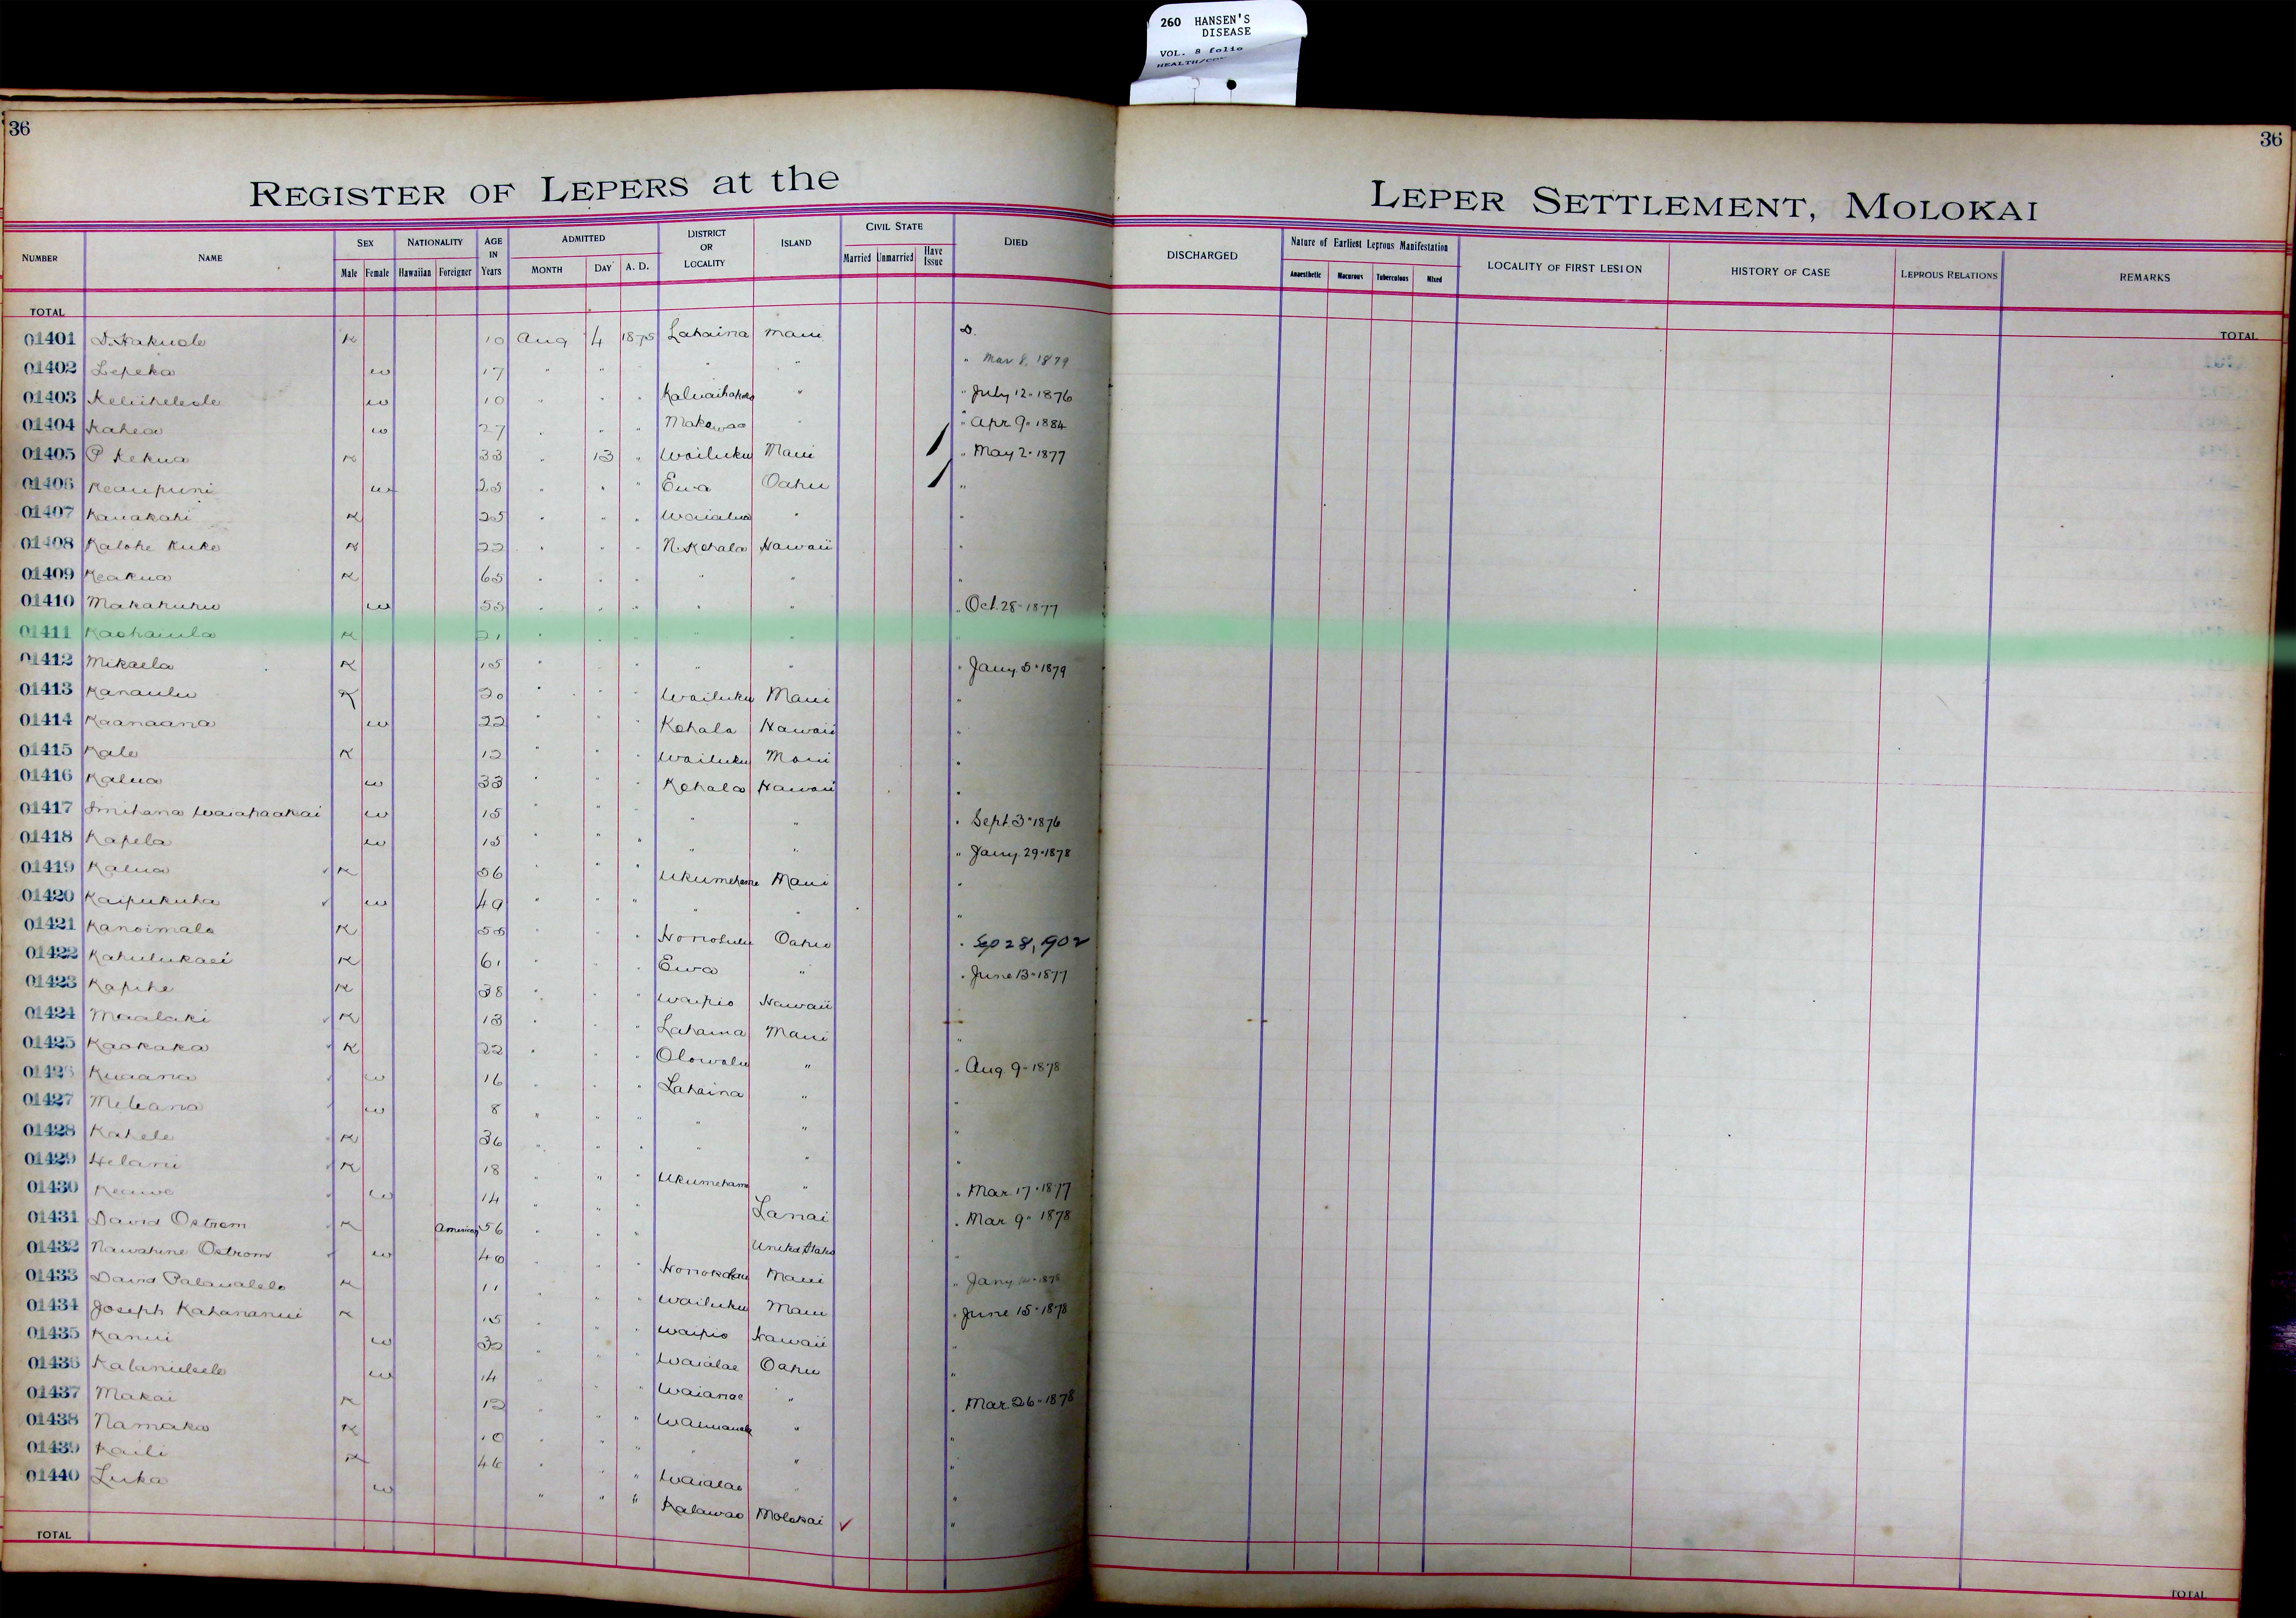 260 HANSEN'S
DISEASE
VOL. 8 folio
36
36
REGISTER OF LEPERS at the
LEPER SETTLEMENT, MOLOKAI
NUMBER NAME SEX Male Female NATIONALITY Hawaiian Foreigner AGE IN Years ADMITTED MONTH DAY A. D. DISTRICT OR LOCALITY ISLAND CIVIL STATE Married Unmarried Have Issue DIED
DISCHARGED Nature of Earliest Leprous Manifestation Anaesthetic Macurous Tuberculous Mixed LOCALITY OF FIRST LESION HISTORY OF CASE LEPROUS RELATIONS REMARKS
TOTAL
TOTAL
01401 D. Hakuole K 10 Aug 4 1875 Lahaina Maui D.
01402 Lepeka w 17 " " " " " " Mar 8, 1879
01403 w 10 " " " " " July 12 - 1876
01404 Kahea w 27 " " " Makawao " " Apr 9 - 1884
01405 P Kekua K 33 " 13 " Wailuku Maui " May 2 - 1877
01406 Keaupuni w 25 " " " Ewa Oahu "
01407 Kauakahi K 25 " " " Waialua " "
01408 Kalohe Kuke K 22 " " " N. Kohala Hawaii "
01409 Keakua K 65 " " " " " "
01410 Makahuhu w 55 " " " " " " Oct. 28 - 1877
01411 Kaohaiula K 21 " " " " "
01412 Mikaela K 15 " " " " " " Jany. 5 - 1879
01413 Kanaulu K 20 " " " Wailuku Maui "
01414 Kaanaana w 22 " " " Kohala Hawaii "
01415 Kale K 12 " " " Wailuku Maui "
01416 Kalua w 33 " " " Kohala Hawaii "
01417 Smihana Waiahaakai w 15 " " " " " " Sept. 3 - 1876
01418 Kapela w 15 " " " " " " Jany. 29 - 1878
01419 Kalua K 56 " " " Ukumehame Maui "
01420 Kaipukuha w 49 " " " " " "
01421 Kanoimalo K 55 " " " Honolulu Oahu " Sep 28, 1902
01422 Kahulukaei K 61 " " " Ewa " " June 13 - 1877
01423 Kapihe K 38 " " " Waipio Hawaii
01424 Maalaki K 13 " " " Lahaina Maui "
01425 Kaokaka K 22 " " " Olowalu " " Aug. 9 - 1878
01426 Kuaana w 16 " " " Lahaina " "
01427 Meleana w 8 " " " " " "
01428 Kahele K 36 " " " " " "
01429 Helani K 18 " " " Ukumehame " " Mar. 17 - 1877
01430 Keawe w 14 " " " Lanai " Mar. 9 - 1878
01431 David Ostrom K American 56 " " " United States "
01432 Nawahine Ostrom w 46 " " " Honokohau Maui " Jany.
01433 David K 11 " " " Wailuku Maui " June 15 - 1878
01434 Joseph Kahananui K 15 " " " Waipio Hawaii "
01435 Kanui w 32 " " " Waialae Oahu "
01436 w 14 " " " Waianae " " Mar. 26 - 1878
01437 Makai K 12 " " " " "
01438 Namaka K 10 " " " " "
01439 Kaili K 46 " " " Waialae " "
01440 Luka w " " " Kalawao Molokai ✓ "
TOTAL
TOTAL